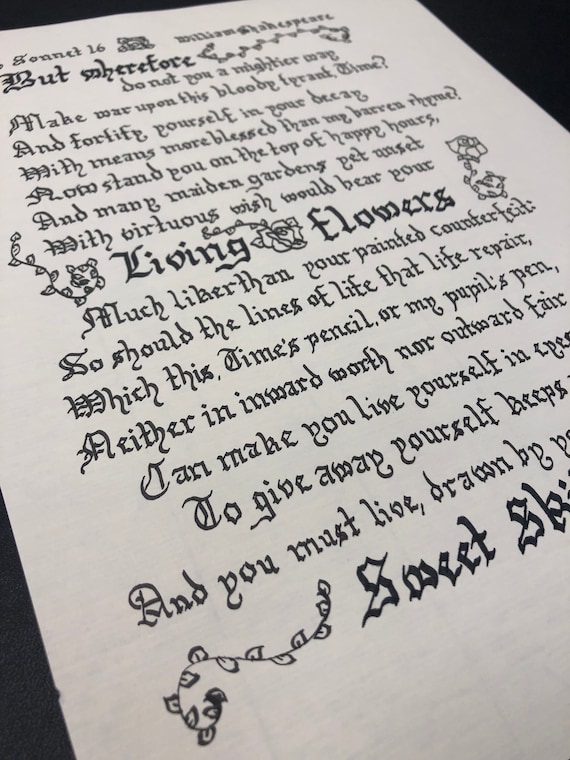 Sonnet 16 William Shakespeare
But wherefore
do not you a mightier way
Make war upon this bloody tyrant, Time?
And fortify yourself in your decay
With means more blessed than my barren rhyme?
Now stand you on the top of happy hours,
And many maiden gardens yet unset
With virtuous wish would bear your
Living flowers
Much liker than your painted counterfeit:
So should the lines of life that life repair,
Which this, Time's pencil, or my pupil's pen,
Neither in inward worth nor outward fair
Can make you live yourself in
To give away yourself keeps
And you must live, drawn by
Sweet